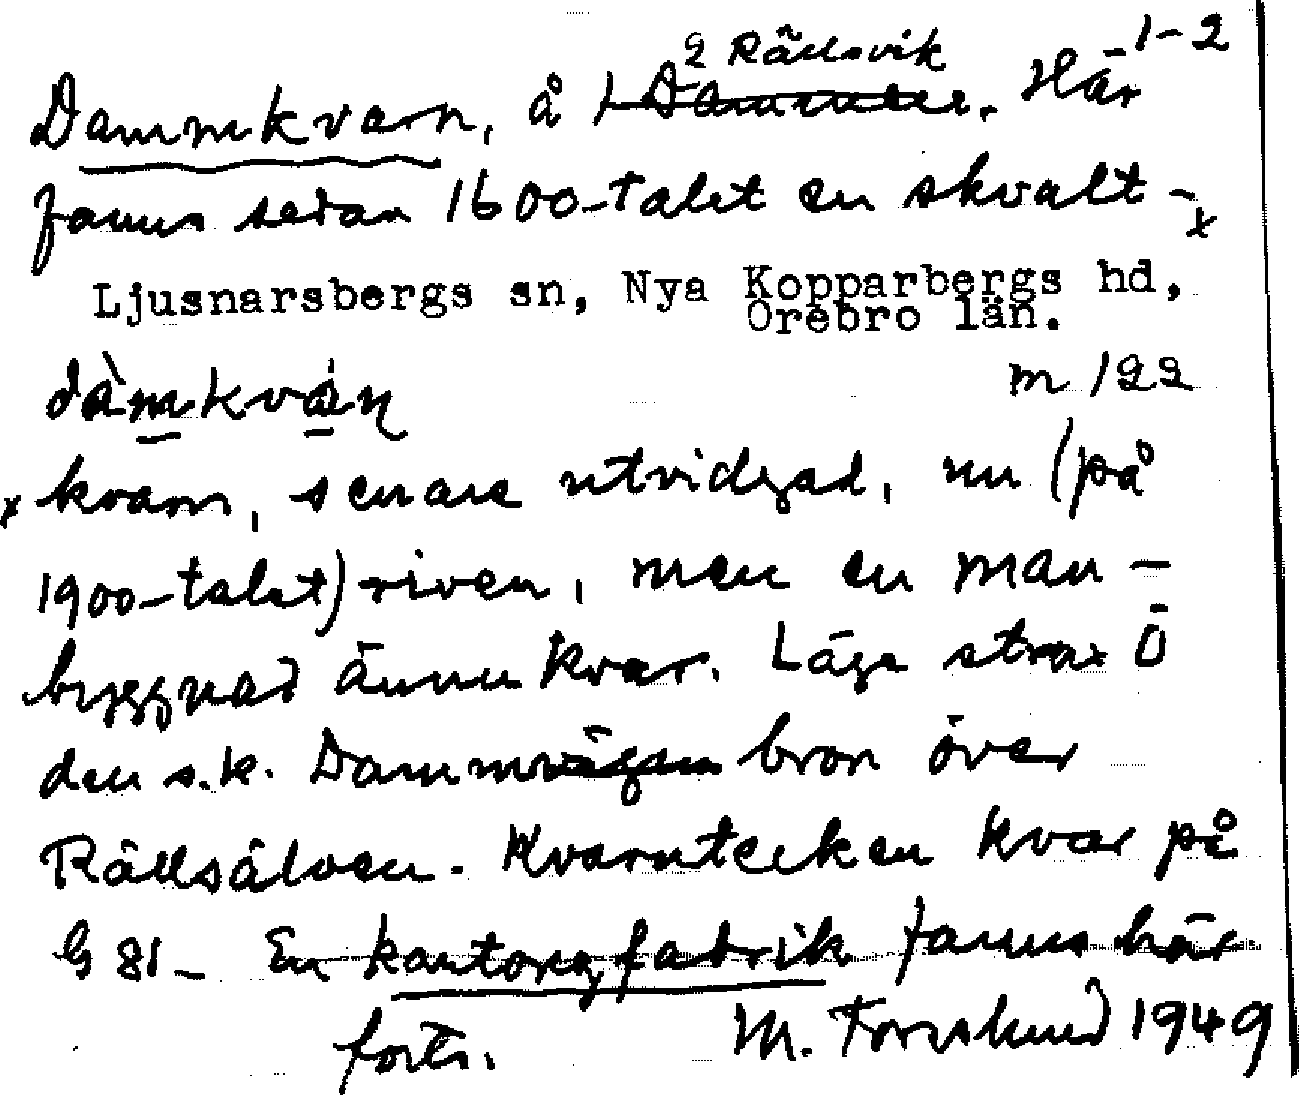 1-2
Dammkvarn, å 1 Dammen. 2 Rällsvik Här
fanns sedan 1600-talet en skvalt-x
Ljusnarsbergs sn, Nya Kopparbergs hd,
Örebro län.
dàmkván m 122
x kvarn, senare utvidgad, nu (på
1900-talet) riven, men en man-
byggnad ännu kvar. Låg strax Ö
den s.k. Dammvägen bron över
Rällsälven. Kvarntecken kvar på
G 81- En kartongfabrik fanns här
forts. M. Forsslund 1949